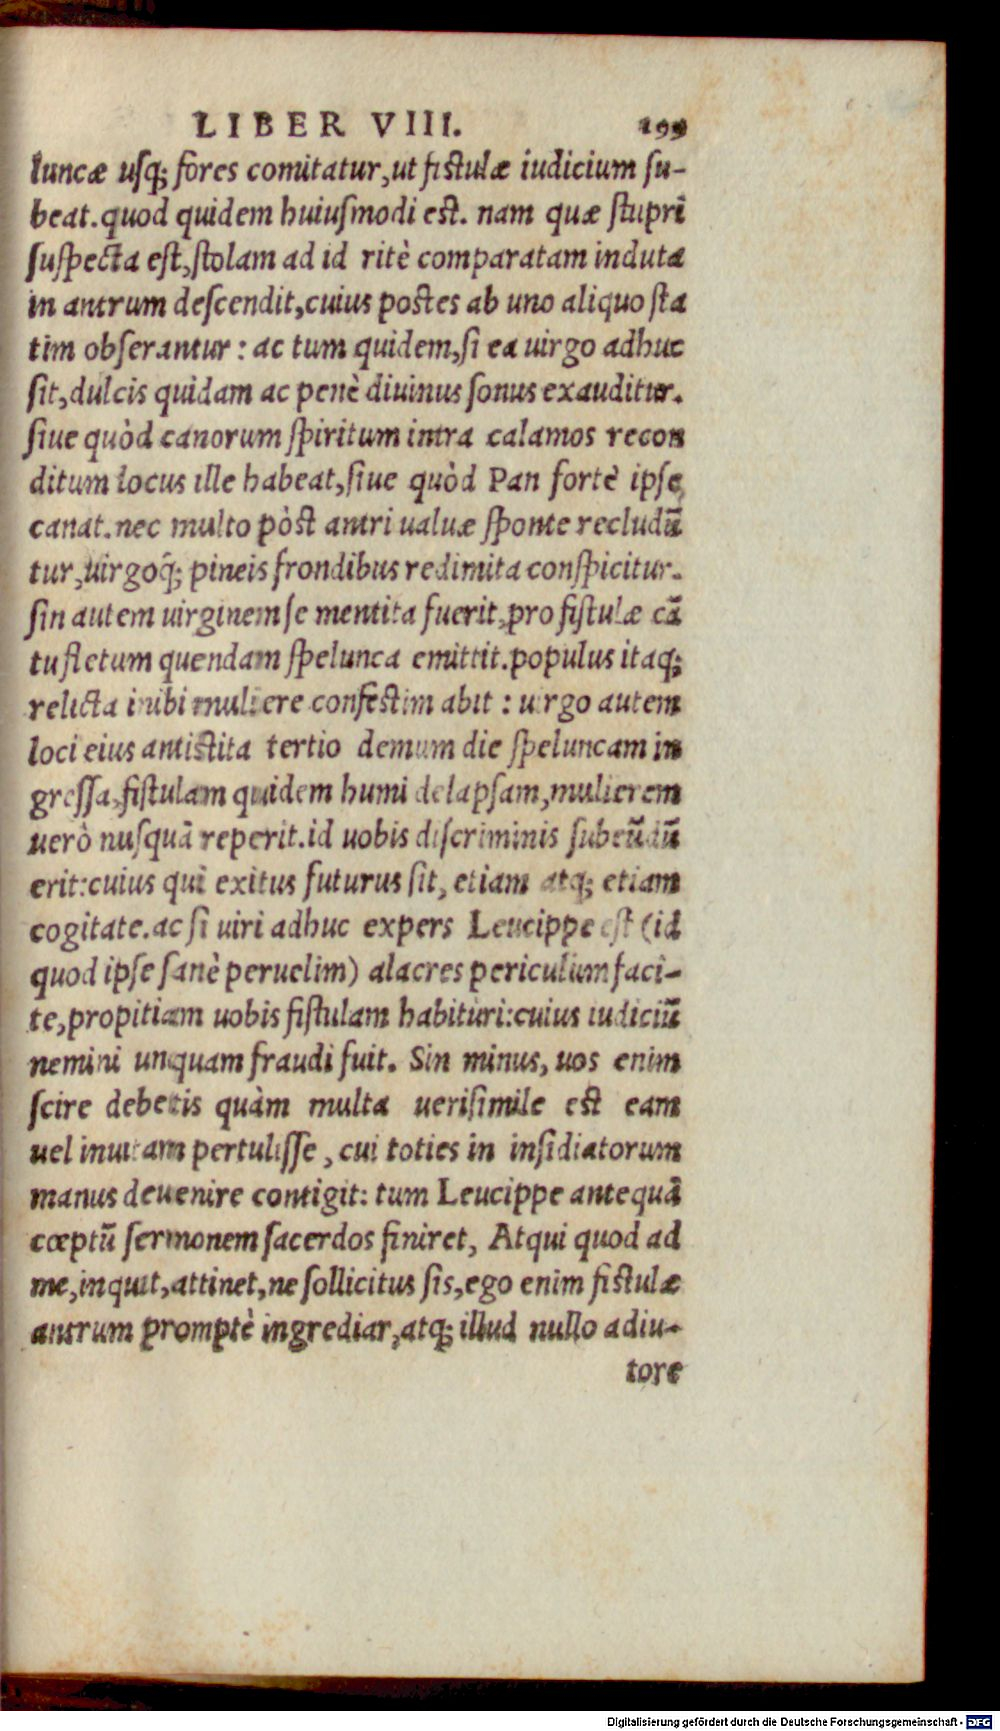 LIBER VIII. 199
luncæ usq; fores comitatur, ut fistulæ iudicium su-
beat. quod quidem huiusmodi est. nam quæ stupri
suspecta est, stolam ad id ritè comparatam induta
in antrum descendit, cuius postes ab uno aliquo sta
tim obserantur: ac tum quidem, si ea uirgo adhuc
sit, dulcis quidam ac penè diuinus sonus exauditur.
siue quòd canorum spiritum intra calamos recon
ditum locus ille habeat, siue quòd Pan fortè ipse
canat. nec multo pòst antri ualuæ sponte recludũ
tur, uirgoq́; pineis frondibus redimita conspicitur.
sin autem uirginem se mentita fuerit, pro fistulæ cã
tu fletum quendam spelunca emittit. populus itaq;
relicta inibi muliere confestim abit: uirgo autem
loci eius antistita tertio demum die speluncam in
gressa, fistulam quidem humi delapsam, mulierem
uerò nusquã reperit. id uobis discriminis subeũdũ
erit: cuius qui exitus futurus sit, etiam atq; etiam
cogitate. ac si uiri adhuc expers Leucippe est (id
quod ipse sanè peruelim) alacres periculum faci-
te, propitiam uobis fistulam habituri: cuius iudiciũ
nemini unquam fraudi fuit. Sin minus, uos enim
scire debetis quàm multa uerisimile est eam
uel inuitam pertulisse, cui toties in insidiatorum
manus deuenire contigit: tum Leucippe antequã
cœptũ sermonem sacerdos finiret, Atqui quod ad
me, inquit, attinet, ne sollicitus sis, ego enim fistulæ
antrum promptè ingrediar, atq; illud nullo adiu-
tore
Digitalisierung gefördert durch die Deutsche Forschungsgemeinschaft - DFG